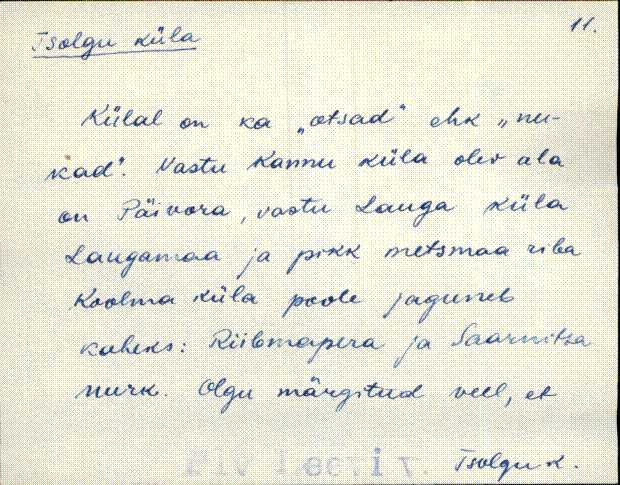 11.
Tsolgu küla
Külal on ka „otsad" ehk „nu-
kad". Vastu Kannu küla olev ala
on Päivora, vastu Lauga küla
Laugamaa ja pikk metsmaa riba
Koolma küla poole jaguneb
kaheks: Riibmapera ja Saarnitsa
nurk. Olgu märgitud veel, et
Tsolgu k.